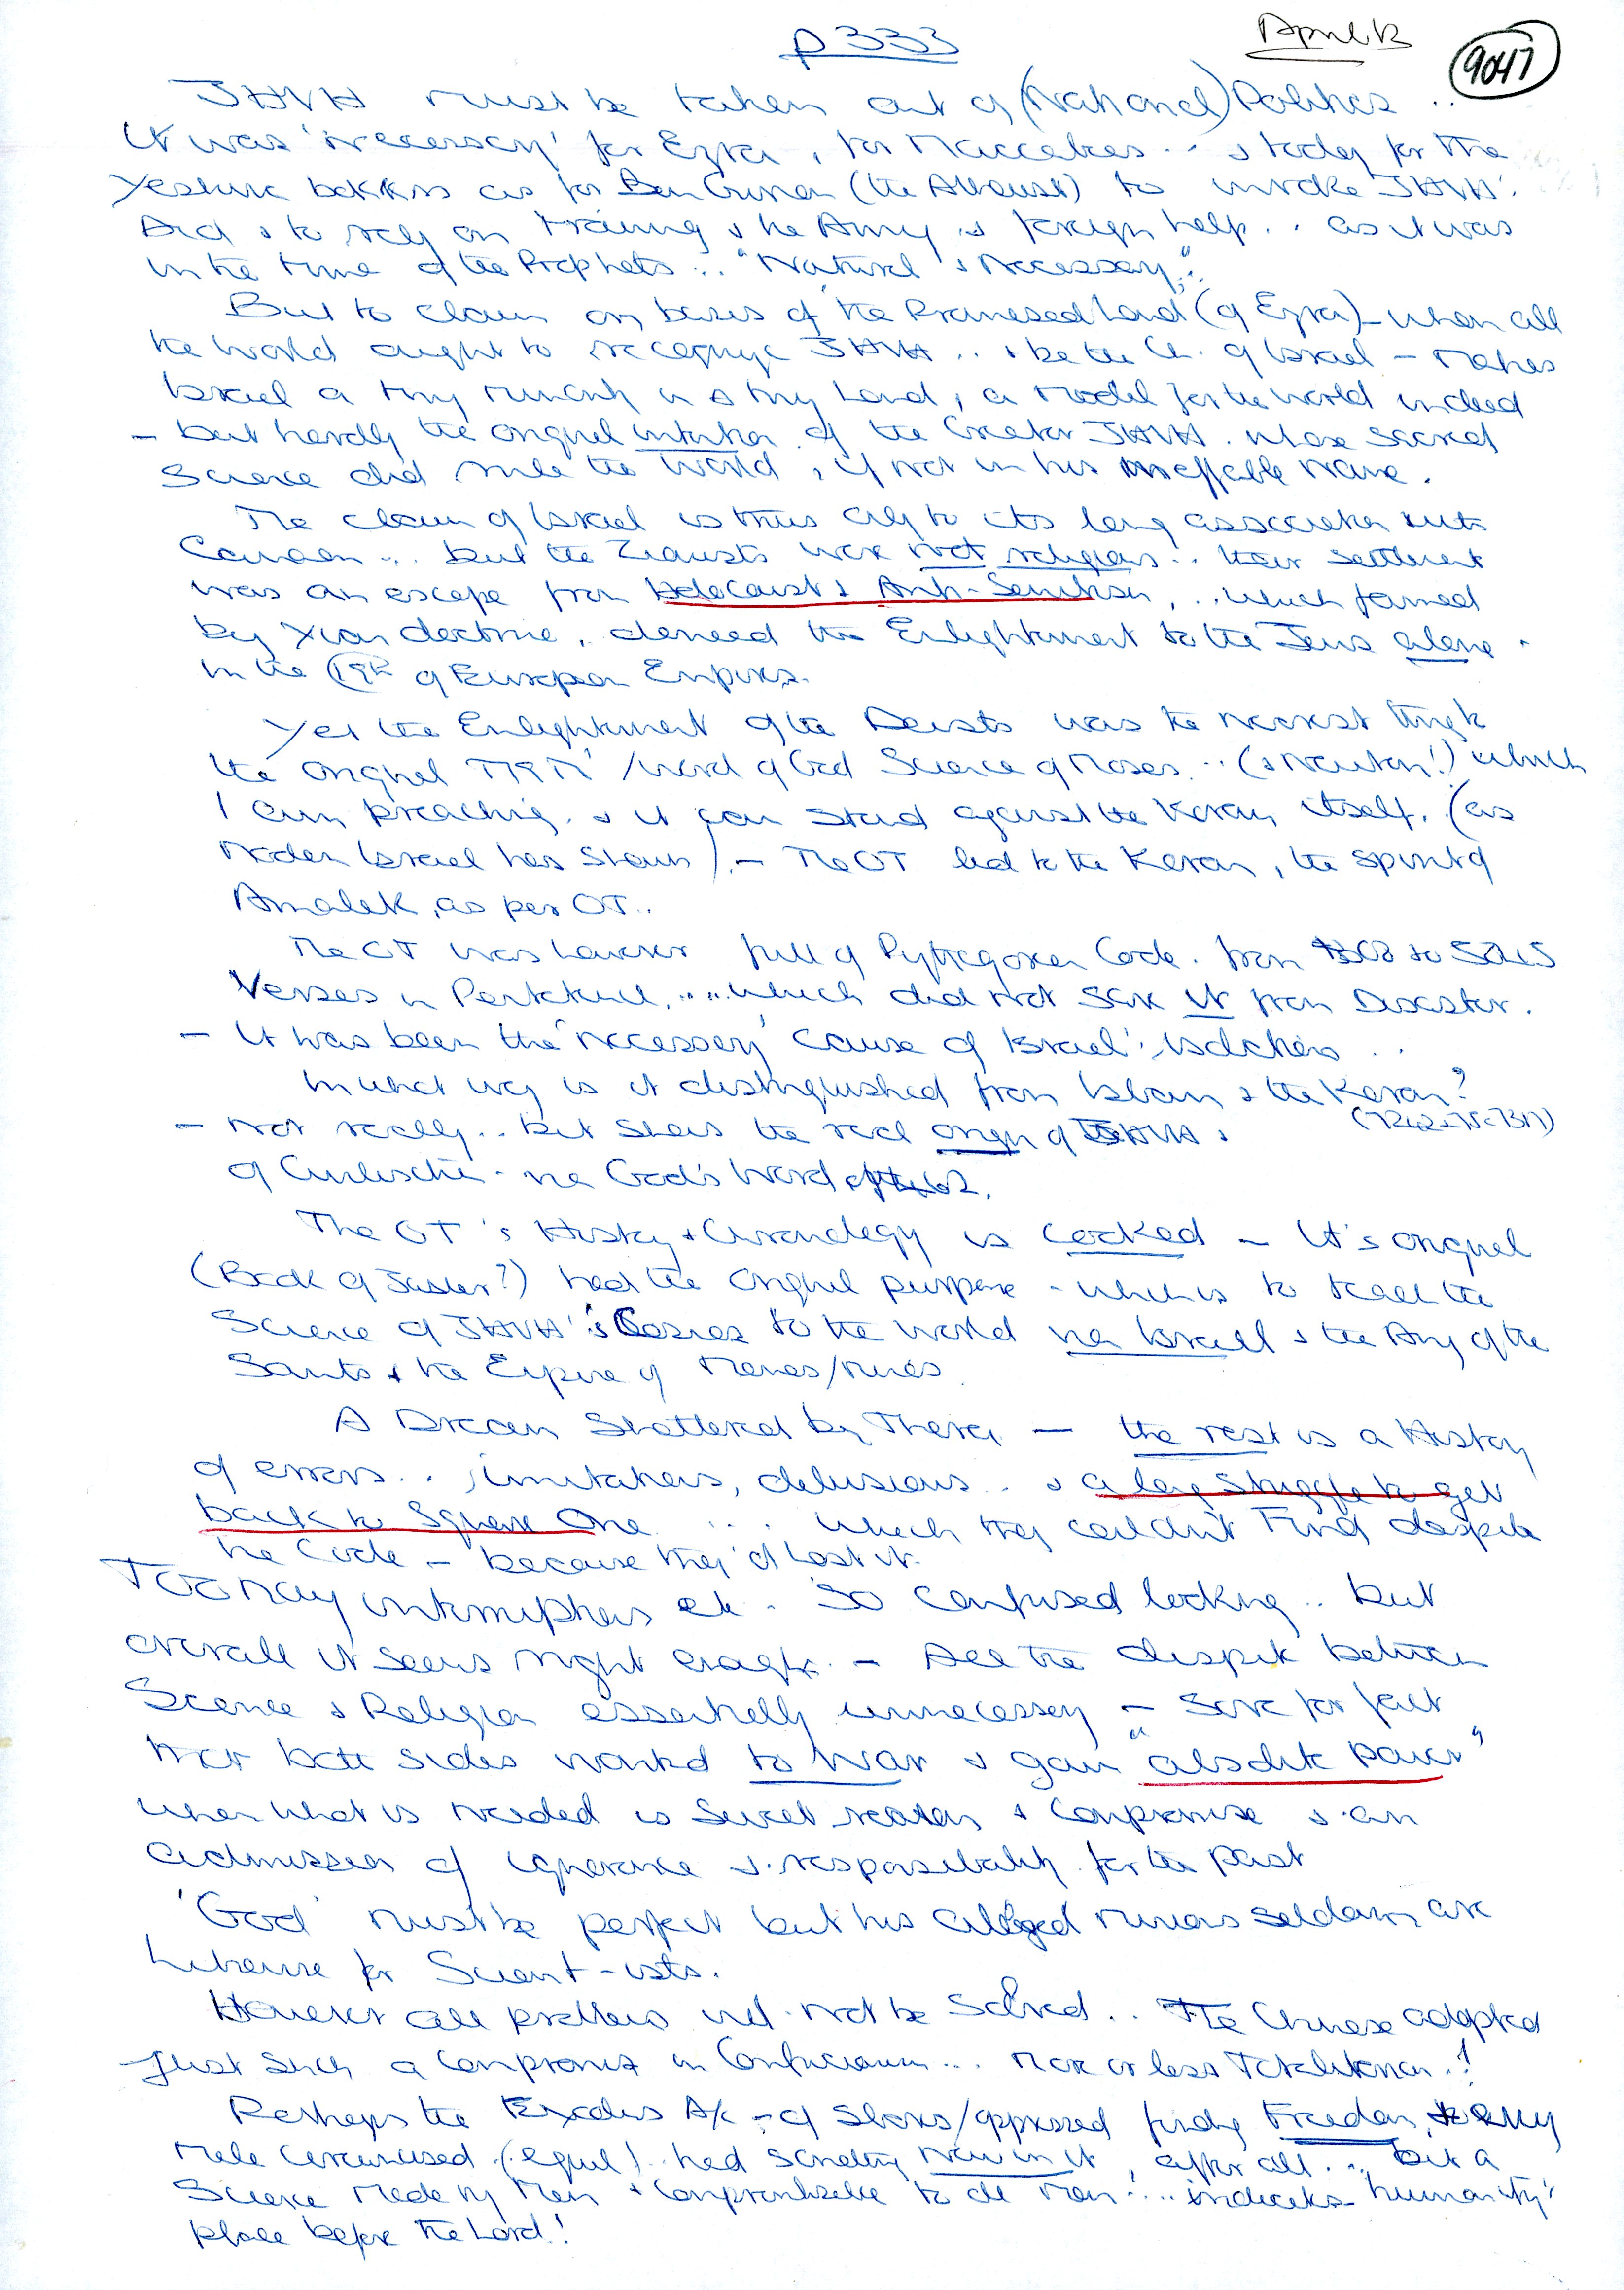 p 333
April 13
9047
JHVH must be taken out of (National) Politics ..
It was 'necessary' for Ezra, for Maccabees .. & today for the
Yeshiva as for Ben Gurion (the Atheist) to invoke JHVH.
And & to rely on training & the Army & foreign help .. as it was
in the time of the Prophets .. "Natural & Necessary".
But to claim on basis of the Promised Land (of Ezra) – when all
the World ought to recognize JHVH .. & be the Ch. of Israel – makes
Israel a tiny minority in a tiny Land, a model for the world indeed
– but hardly the original intention of the Creator JHVH. whose Sacred
Science did rule the World, if not in his ineffable Name.
The claim of Israel is thus only to its long association with
Canaan ... but the Zionists were not religious .. their settlement
was an escape from Holocaust & Anti-Semitism, .. which formed
by Xian doctrine, denied the Enlightment to the Jews alone.
in the 19C of European Empires.
Yet the Enlightment of the Deists was the nearest thing to
the original /Word of God Science of Moses ... (& Newton!) which
I am preaching. & it can stand against the Koran itself. (as
Modern Israel has shown). – The OT led to the Koran, the spirit of
Amalek, as per OT..
The OT was however full of Pythagorean Code. from to 5845
Verses in Pentateuch, .... which did not save it from Disaster.
– It was been the 'necessary' cause of Israel's isolation ..
In what way is it distinguished from Islam & the Koran?
– Not really .. but shows the real origin of JHVH &
of Civilisation - via God's Word
The OT's History & Chronology is cooked – It's original
(Book of Jasher?) had the original purpose - which is to teach the
Science of JHVH's to the world via Israel & the Army of the
Saints & the Empire of Menes/Minos.
A Dream Shattered by Thera – the rest is a History
of errors .. , imitations, delusions .. & a long struggle to get
back to Square One .... which they couldn't Find despite
the Code – because they'd lost it.
Too many interruptions etc. So confused looking .. but
overall it seems right enough. – All the dispute between
Science & Religion essentially unnecessary – save for fact
that both sides wanted to War & gain "absolute power"
when what is needed is Sweet reason & Compromise & an
admission of ignorance & responsibility for the past
'God' must be perfect but his alleged minions seldom are
Likewise for Scient-ists.
However all problems will not be solved .. The Chinese adopted
Just such a compromise in Confucianism ... more or less Totalitarian .!
Perhaps the Exodus A/c – of slaves/oppressed finding Freedom, & every
Male circumcised (equal) .. had something new in it, after all ... but a
Science made by Men & comprehensible to all Men ... indicates humanity's
place before the Lord!